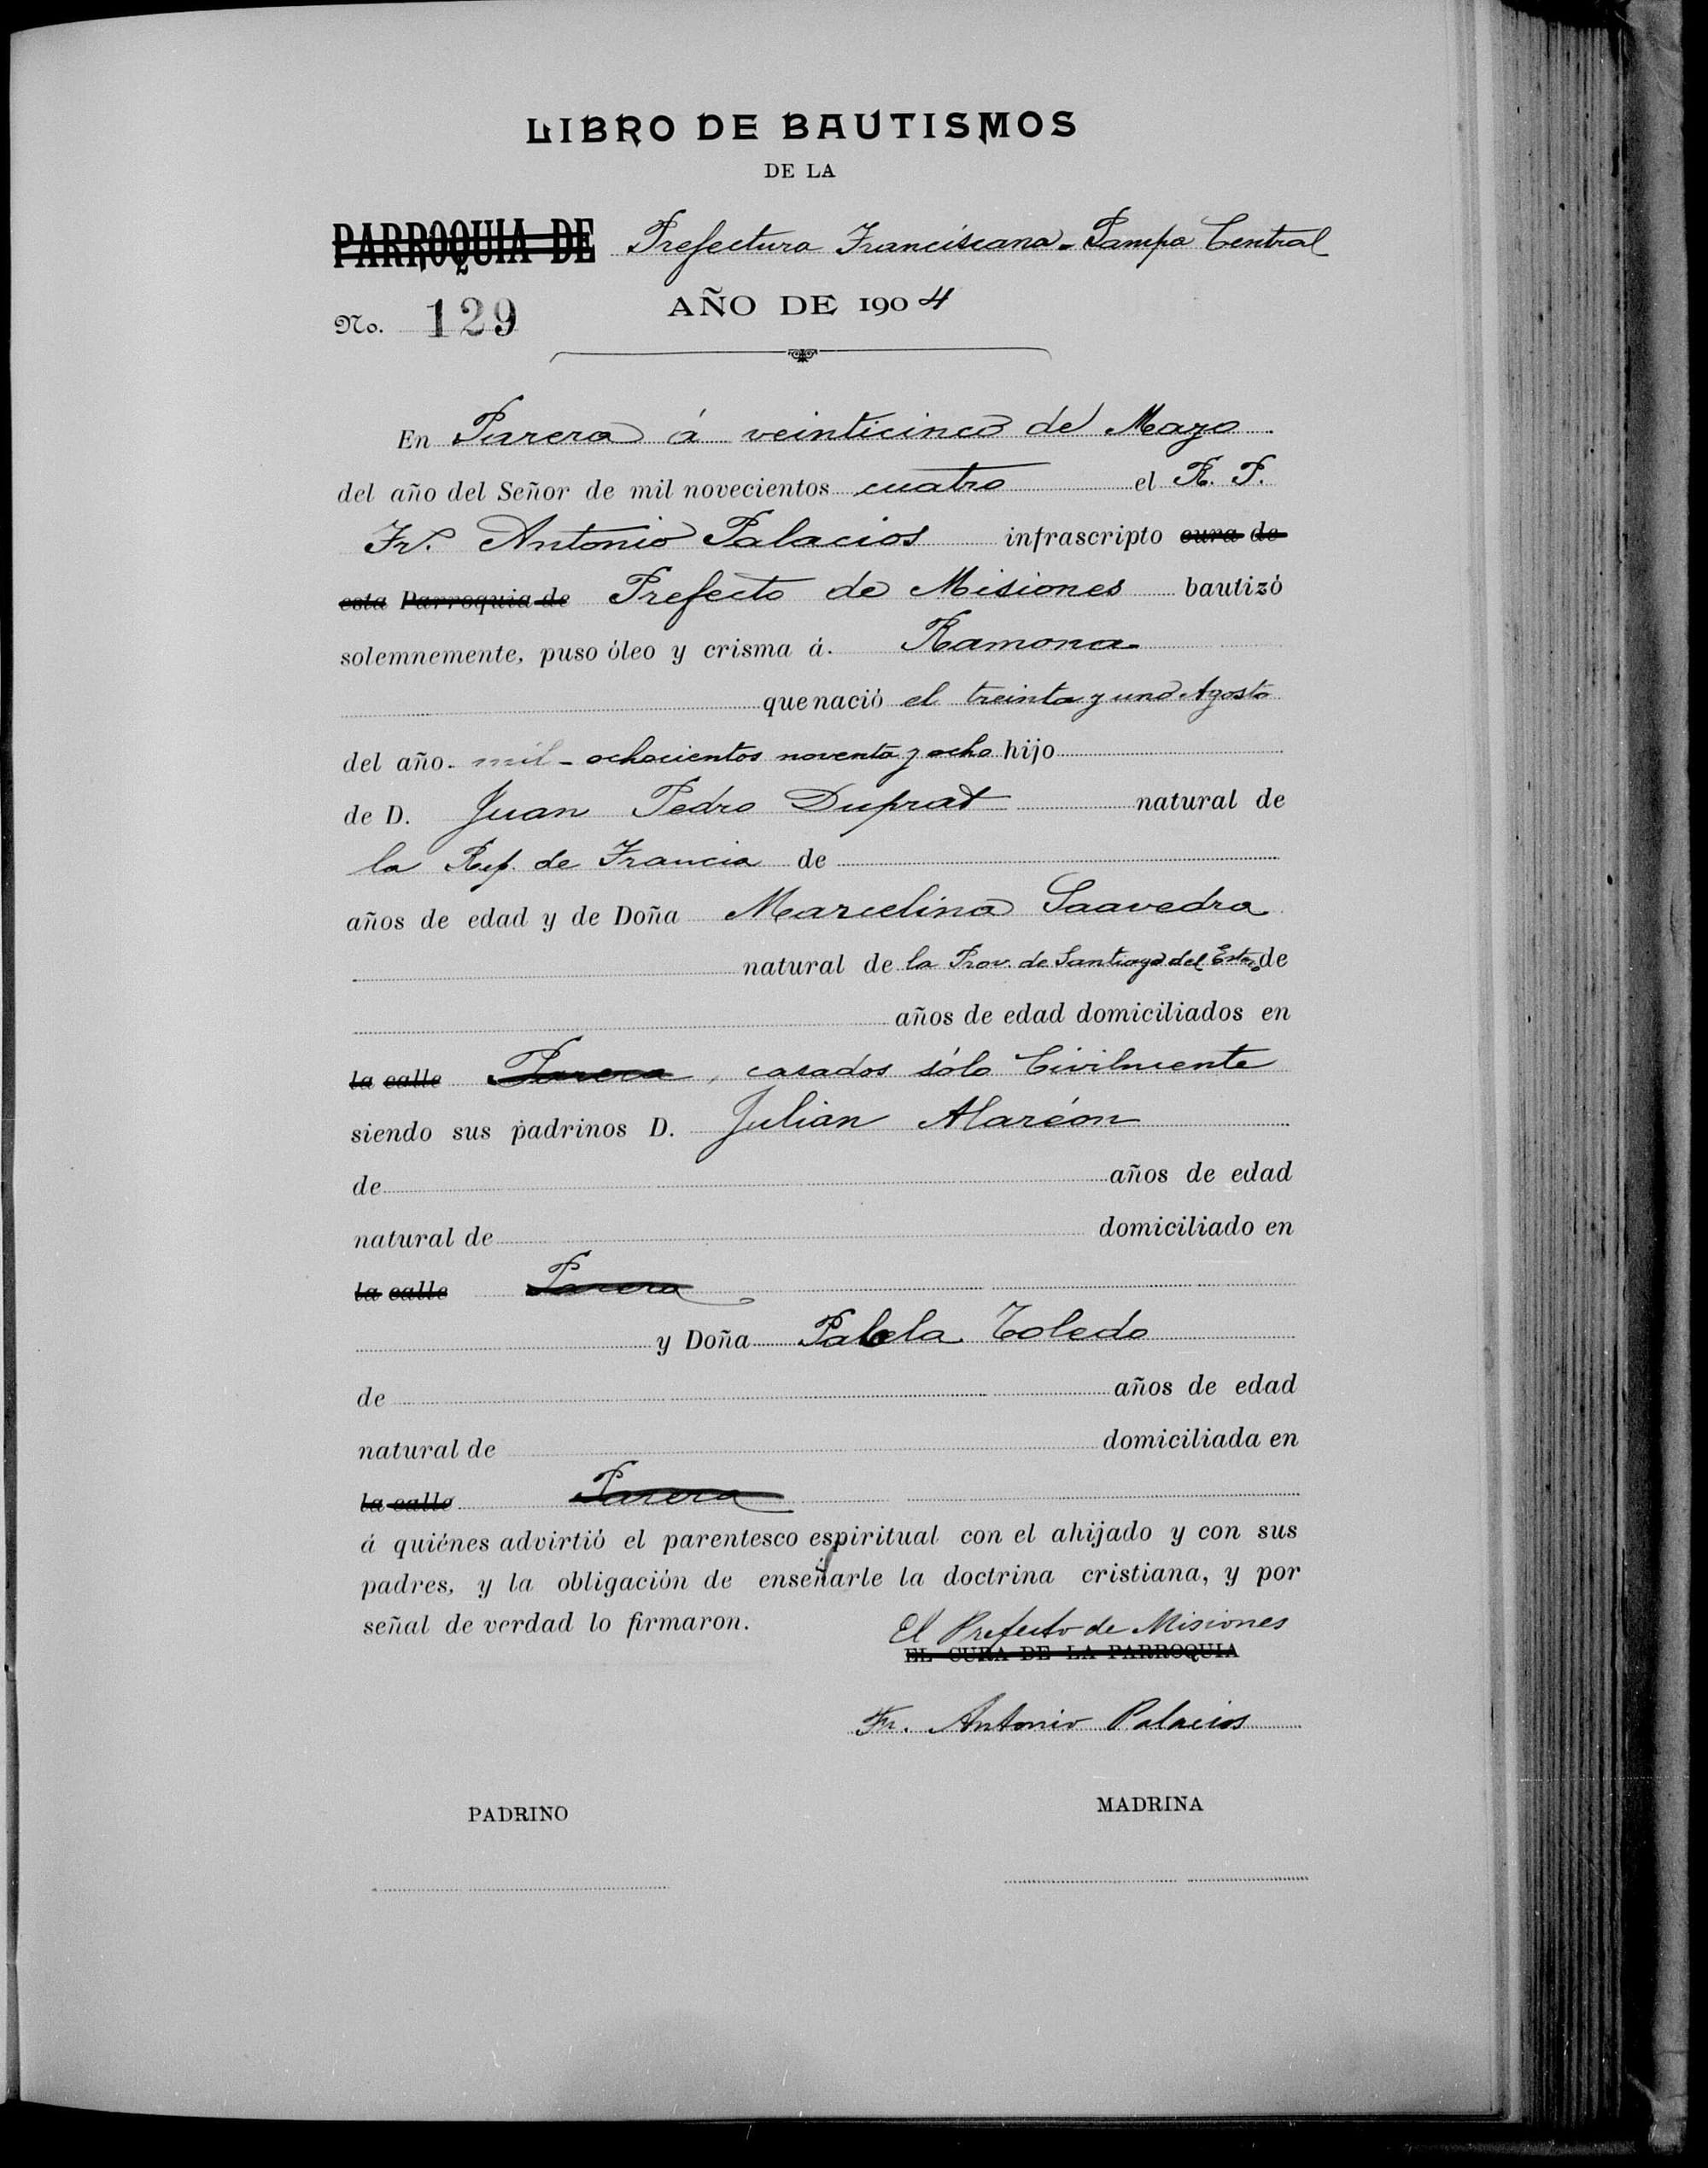 LIBRO DE BAUTISMOS
DE LA
PARROQUIA DE Prefectura Franciscana - Pampa Central
No. 129 AÑO DE 1904
En Parera á veinticinco de Mayo
del año del Señor de mil novecientos cuatro el R. P.
Fr. Antonio Palacios infrascripto cura de
esta Parroquia de Prefecto de Misiones bautizó
solemnemente, puso óleo y crisma á. Ramona
que nació el treinta y uno Agosto
del año. mil - ochocientos noventa y ocho hijo
de D. Juan Pedro Duprat natural de
la Rep. de Francia de
años de edad y de Doña Marcelina Saavedra
natural de la Prov. de Santiago del Estero de
años de edad domiciliados en
la calle Parera, casados sólo Civilmente
siendo sus padrinos D. Julian Alarcón
de años de edad
natural de domiciliado en
la calle Parera
y Doña Toledo
de años de edad
natural de domiciliada en
la calle Parera
á quiénes advirtió el parentesco espiritual con el ahijado y con sus
padres, y la obligación de enseñarle la doctrina cristiana, y por
señal de verdad lo firmaron.
El Prefecto de Misiones
EL CURA DE LA PARROQUIA
Fr. Antonio Palacios
PADRINO MADRINA